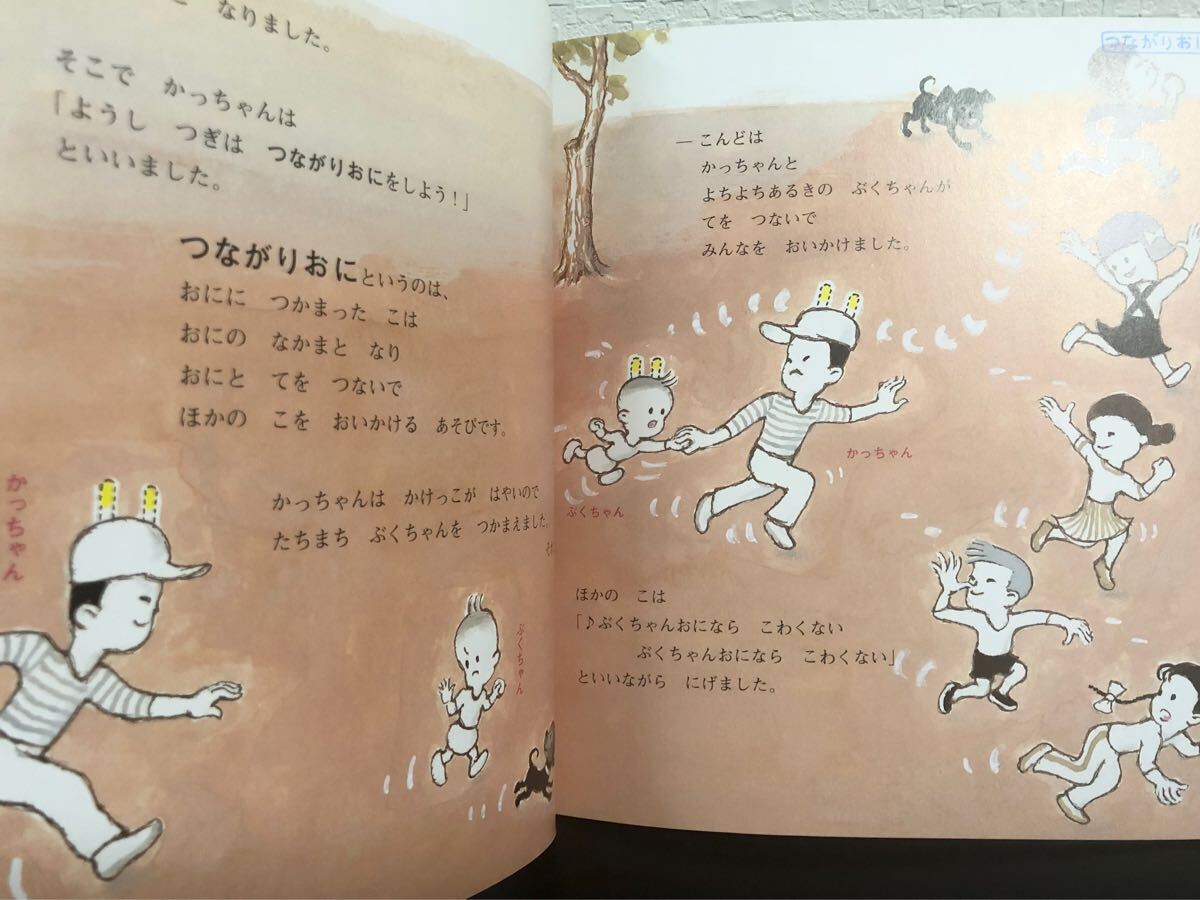 なりました。
そこで かっちゃんは
「ようし つぎは つながりおにをしよう！」
といいました。
つながりおにというのは、
おにに つかまった こは
おにの なかまと なり
おにと てを つないで
ほかの こを おいかける あそびです。
かっちゃんは かけっこが はやいので
たちまち ぶくちゃんを つかまえました。
かっちゃん
ぶくちゃん
つながりおに
—こんどは
かっちゃんと
よちよちあるきの ぶくちゃんが
てを つないで
みんなを おいかけました。
かっちゃん
ぶくちゃん
ほかの こは
「♪ぶくちゃんおになら こわくない
ぶくちゃんおになら こわくない」
といいながら にげました。